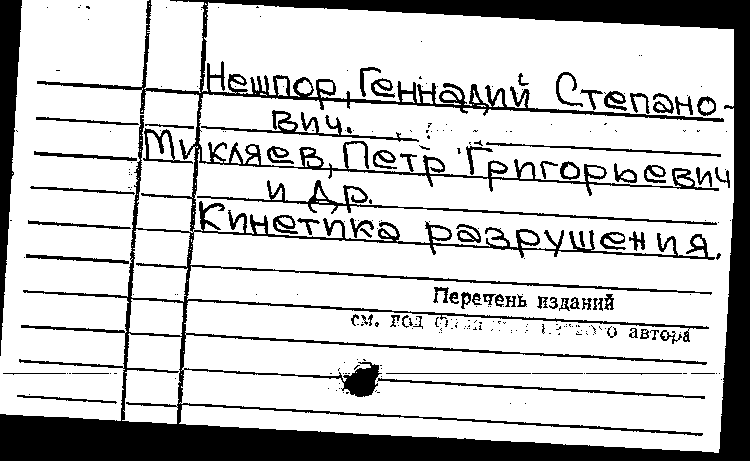 Нешпор, Геннадий Степано-
вич.
Микляев, Петр Григорьевич
и др.
Кинетика разрушения.
Перечень изданий
см. под автора